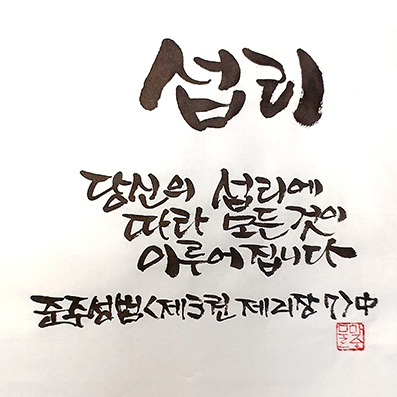 섭리
당신의 섭리에
따라 모든 것이
이루어집니다
준주성범<제3권 제21장 7>中